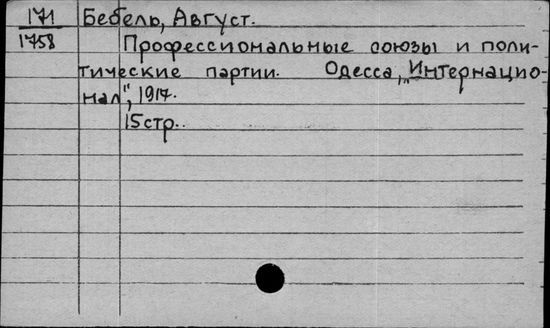 171
1758
Бебель, Август.
Профессиональные союзы и поли-
тические партии. Одесса, „Интернацио-
нал", 1917.
15 стр..